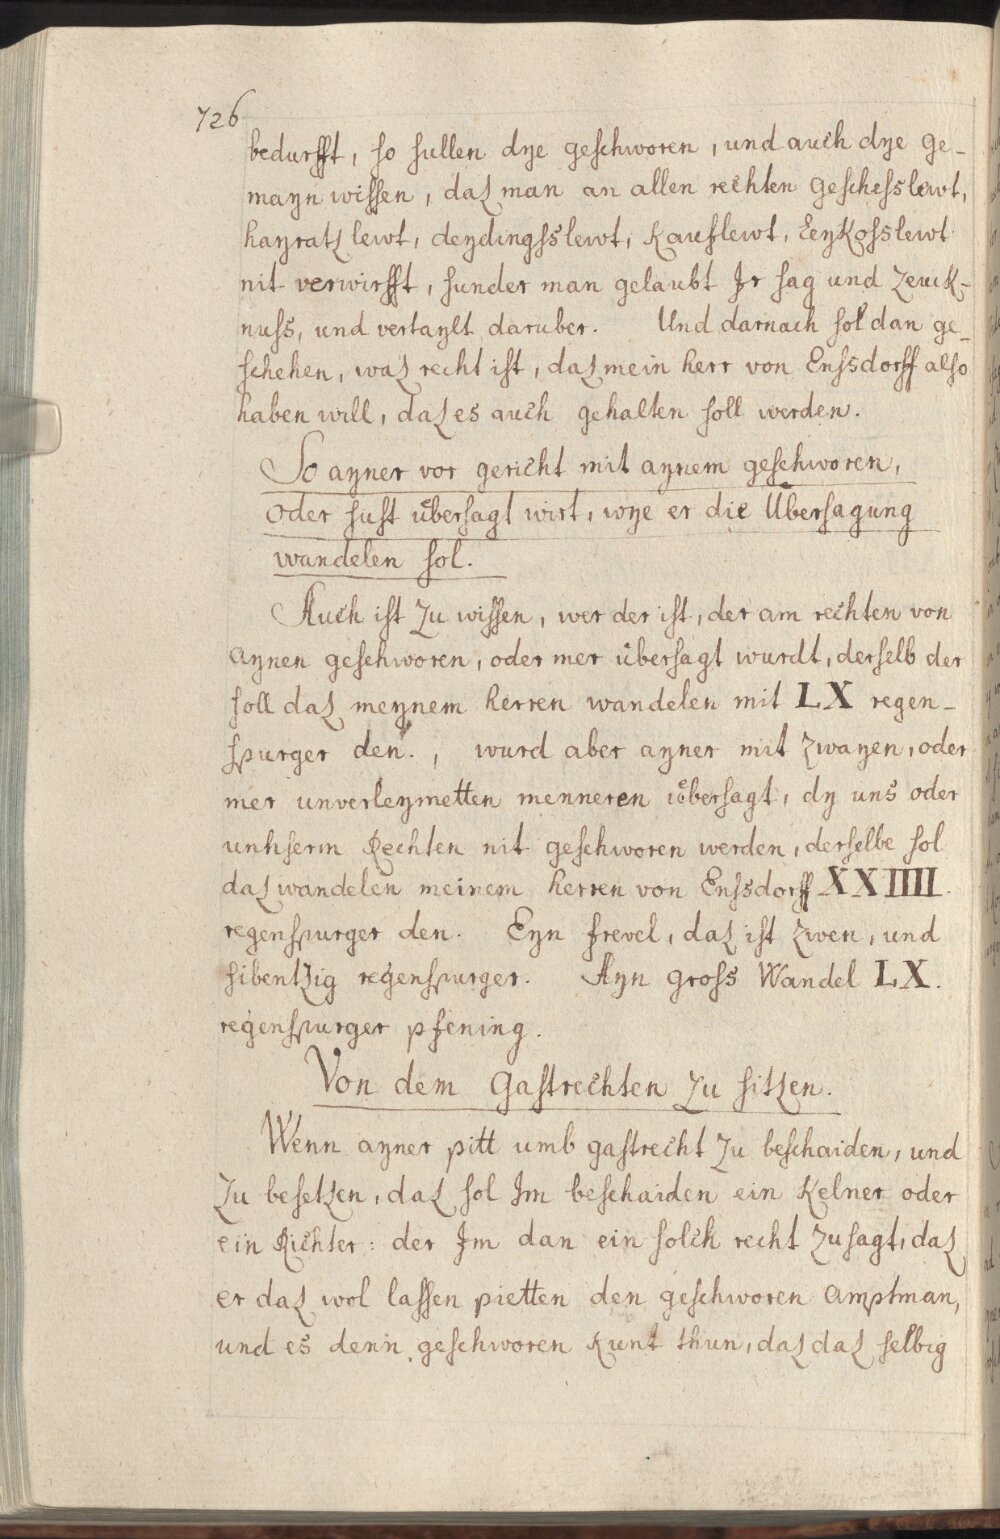 726
bedurfft, so sullen dye geschworen, und auch dye ge-
mayn wissen, daz man an allen rechten geschefslewt,
hayratz lewt, deydingsslewt, Kauflewt, Leykofslewt
nit verwirfft, sunder man gelaubt Ir sag und Zeuck-
nuss, und vertaylt daruber. Und darnach sol dan ge-
schehen, waz recht ist, daz mein herr von Enssdorff also
haben will, daz es auch gehalten soll werden.
So ayner vor gericht mit aynem geschworen,
oder sust übersagt wirt, wye er die Ubersagung
wandelen sol.
Auch ist zu wissen, wer der ist, der am rechten von
aynen geschworen, oder mer übersagt wurdt, derselb der
soll daz meynem herren wandelen mit LX regen-
spurger den., wurd aber ayner mit zwayen, oder
mer unverleymetten menneren übersagt, dy uns oder
unhserm Rechten nit geschworen werden, derselbe sol
daz wandelen meinem herren von Enssdorff XXIIII.
regenspurger den. Eyn frevel, daz ist zwen, und
sibentzig regenspurger. Ayn gross Wandel LX.
regenspurger pfening.
Von dem Gastrechten zu sitzen.
Wenn ayner pitt umb gastrecht zu beschaiden, und
zu besetzen, daz sol Im beschaiden ein Kelner oder
ein Richter: der Im dan ein solch recht zusagt, daz
er daz wol lassen pietten den geschworen Amptman,
und es denn geschworen Kunt thun, daz daz selbig